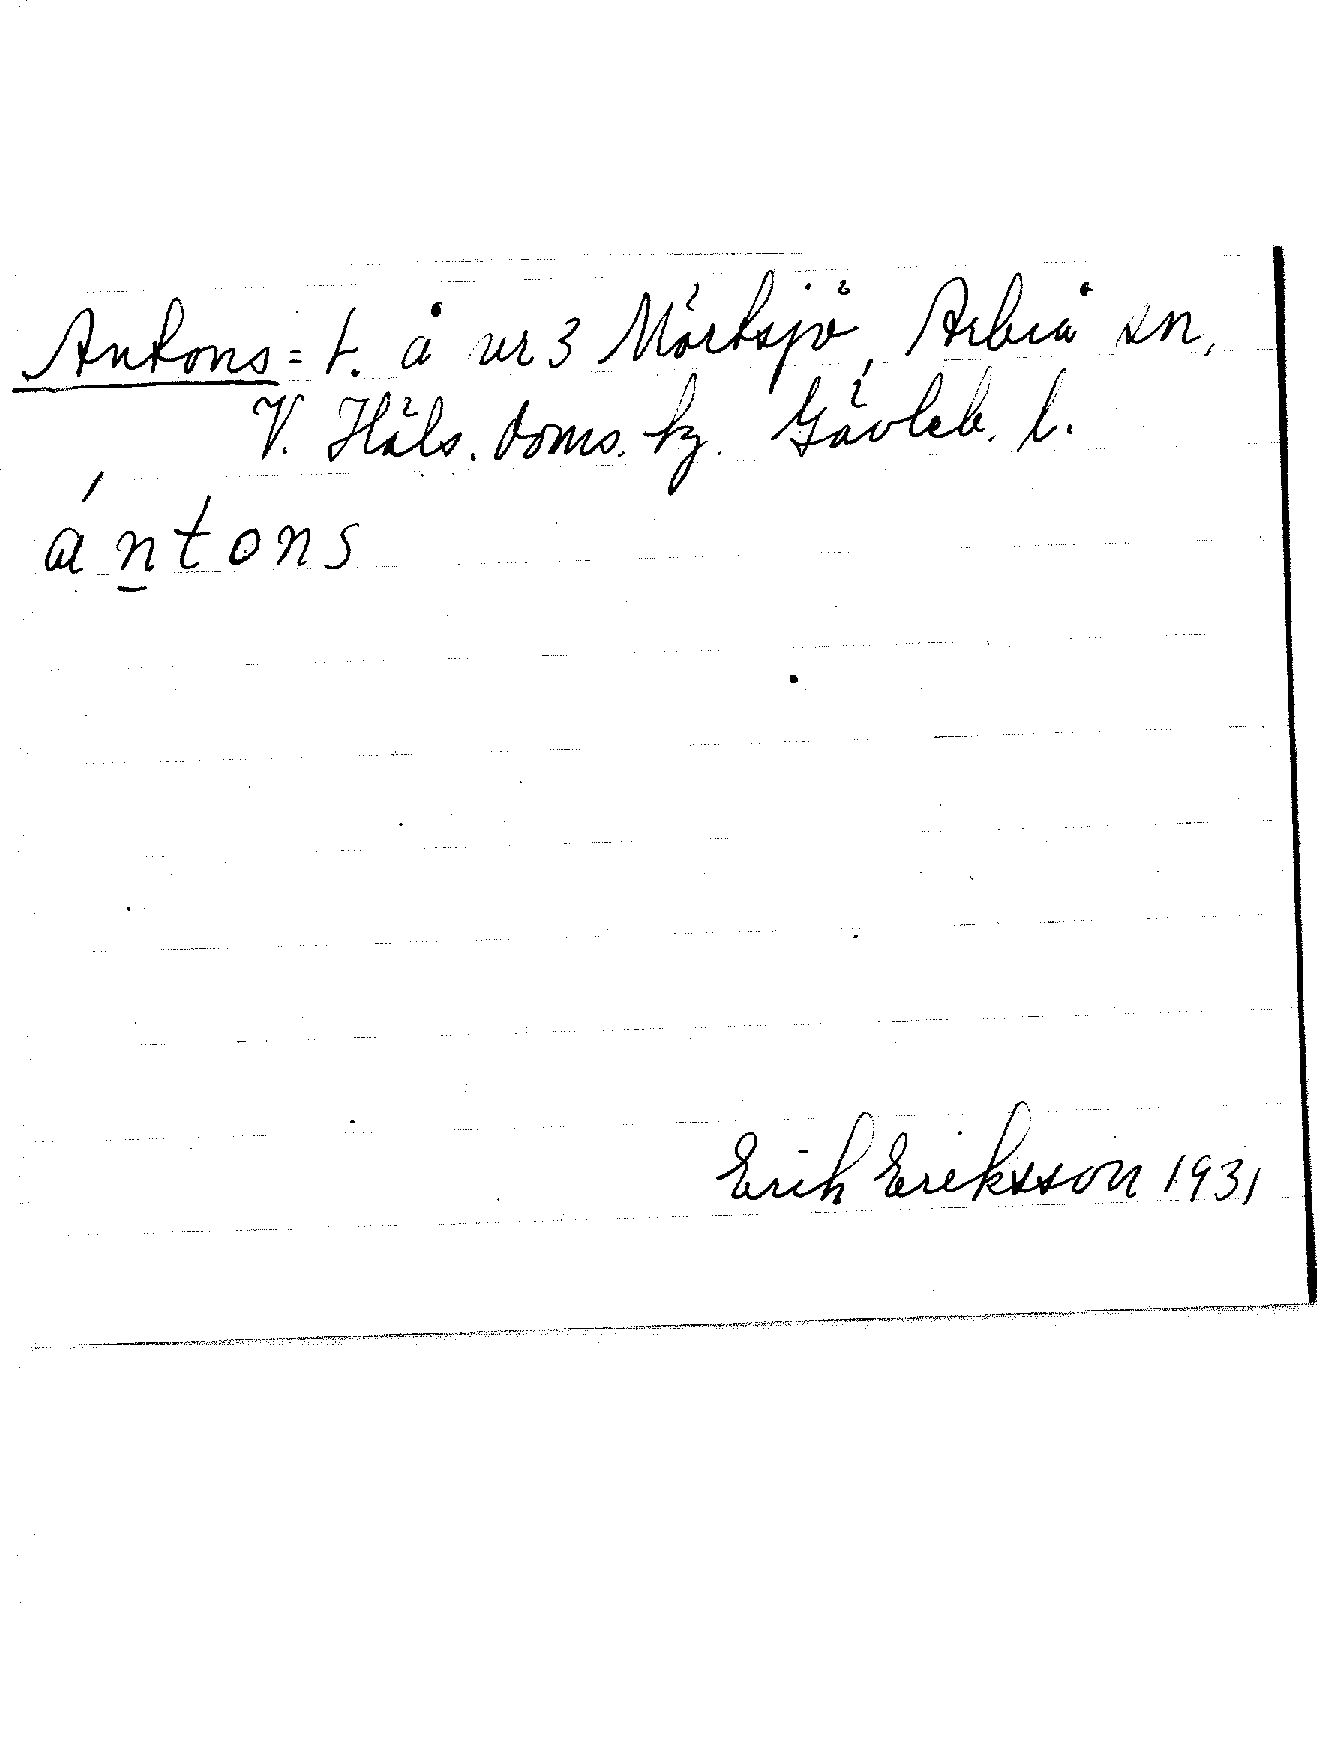 Antons = t. å nr 3 Mörtsjö, Arbrå sn,
V. Häls. doms. hg. Gävleb. l.
ántons
Erik Eriksson 1931